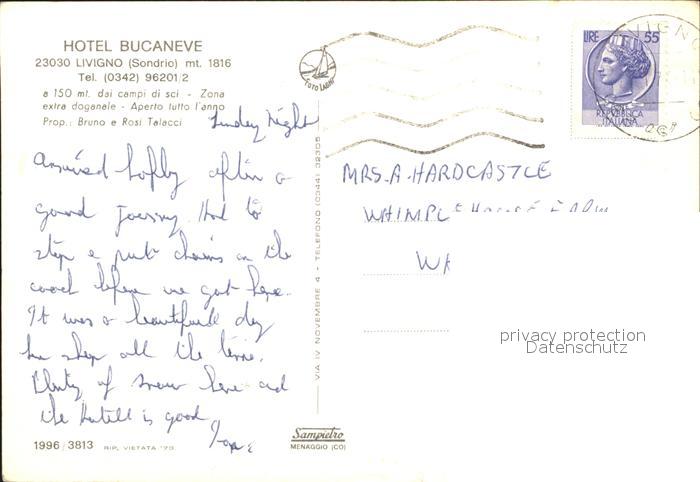 HOTEL BUCANEVE
23030 LIVIGNO (Sondrio) mt. 1816
Tel. (0342) 96201/2
a 150 mt. dai campi di sci - Zona
extra doganale - Aperto tutto l'anno
Prop.: Bruno e Rosi Talacci
Sunday Night
Arrived safely after a
good Journey. Had to
stop & put chains on the
coach before we got here.
It was a beautiful day
all the time.
Plenty of snow here and
the hotell is good
1996/3813
RIP. VIETATA '75
VIA IV NOVEMBRE 4 - TELEFONO (0344) 32305
Sampietro
MENAGGIO (CO)
FOTO LABRI
LIRE 55
REPVBBLICA
ITALIANA
MRS. A. HARDCASTLE
WHIMPLE HOUSE FARM
privacy protection
Datenschutz